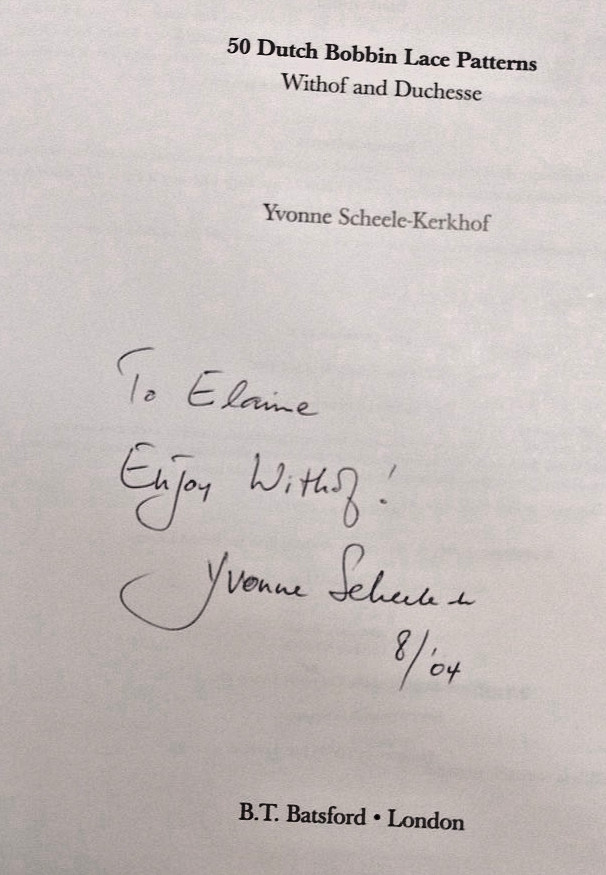 50 Dutch Bobbin Lace Patterns
Withof and Duchesse
Yvonne Scheele-Kerkhof
To Elaine
Enjoy Withof!
Yvonne
8/'04
B.T. Batsford • London